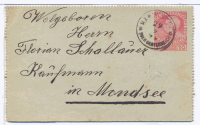 Wolgeboren
Herrn
Florian Schallauer
Kaufmann
in Mondsee